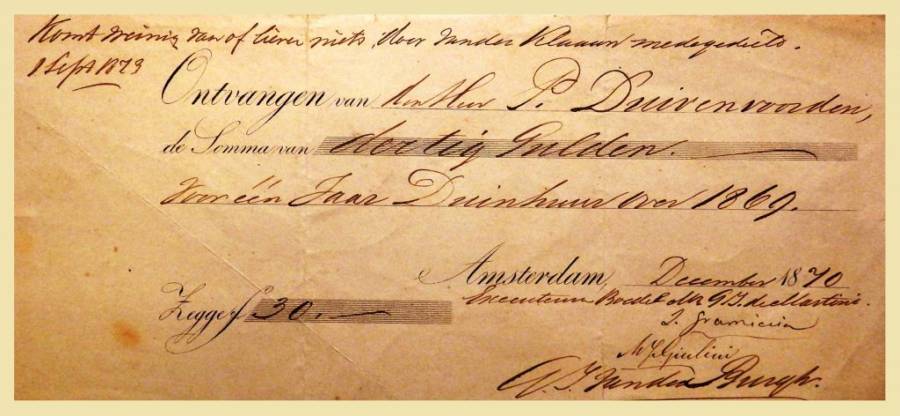 Komt weinig van of liever niets, door van der Klaauw medegedeeld.
1 Sept 1873
Ontvangen van den Heer P. Duivenvoorden,
de Somma van dertig Gulden.
voor één Jaar Duinhuur over 1869.
Amsterdam, December 1870
Zegge f 30.
Executeuren Boedel G. J. de Martini.
M. J. Giulini
G. J. van der Burgh.